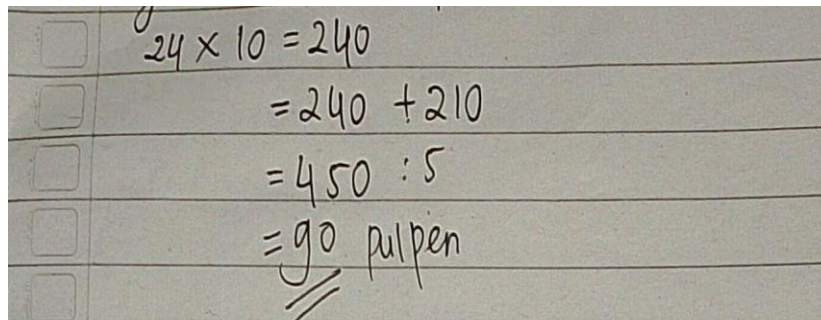 24 × 10 = 240
= 240 + 210
= 450 : 5
= 90 pulpen